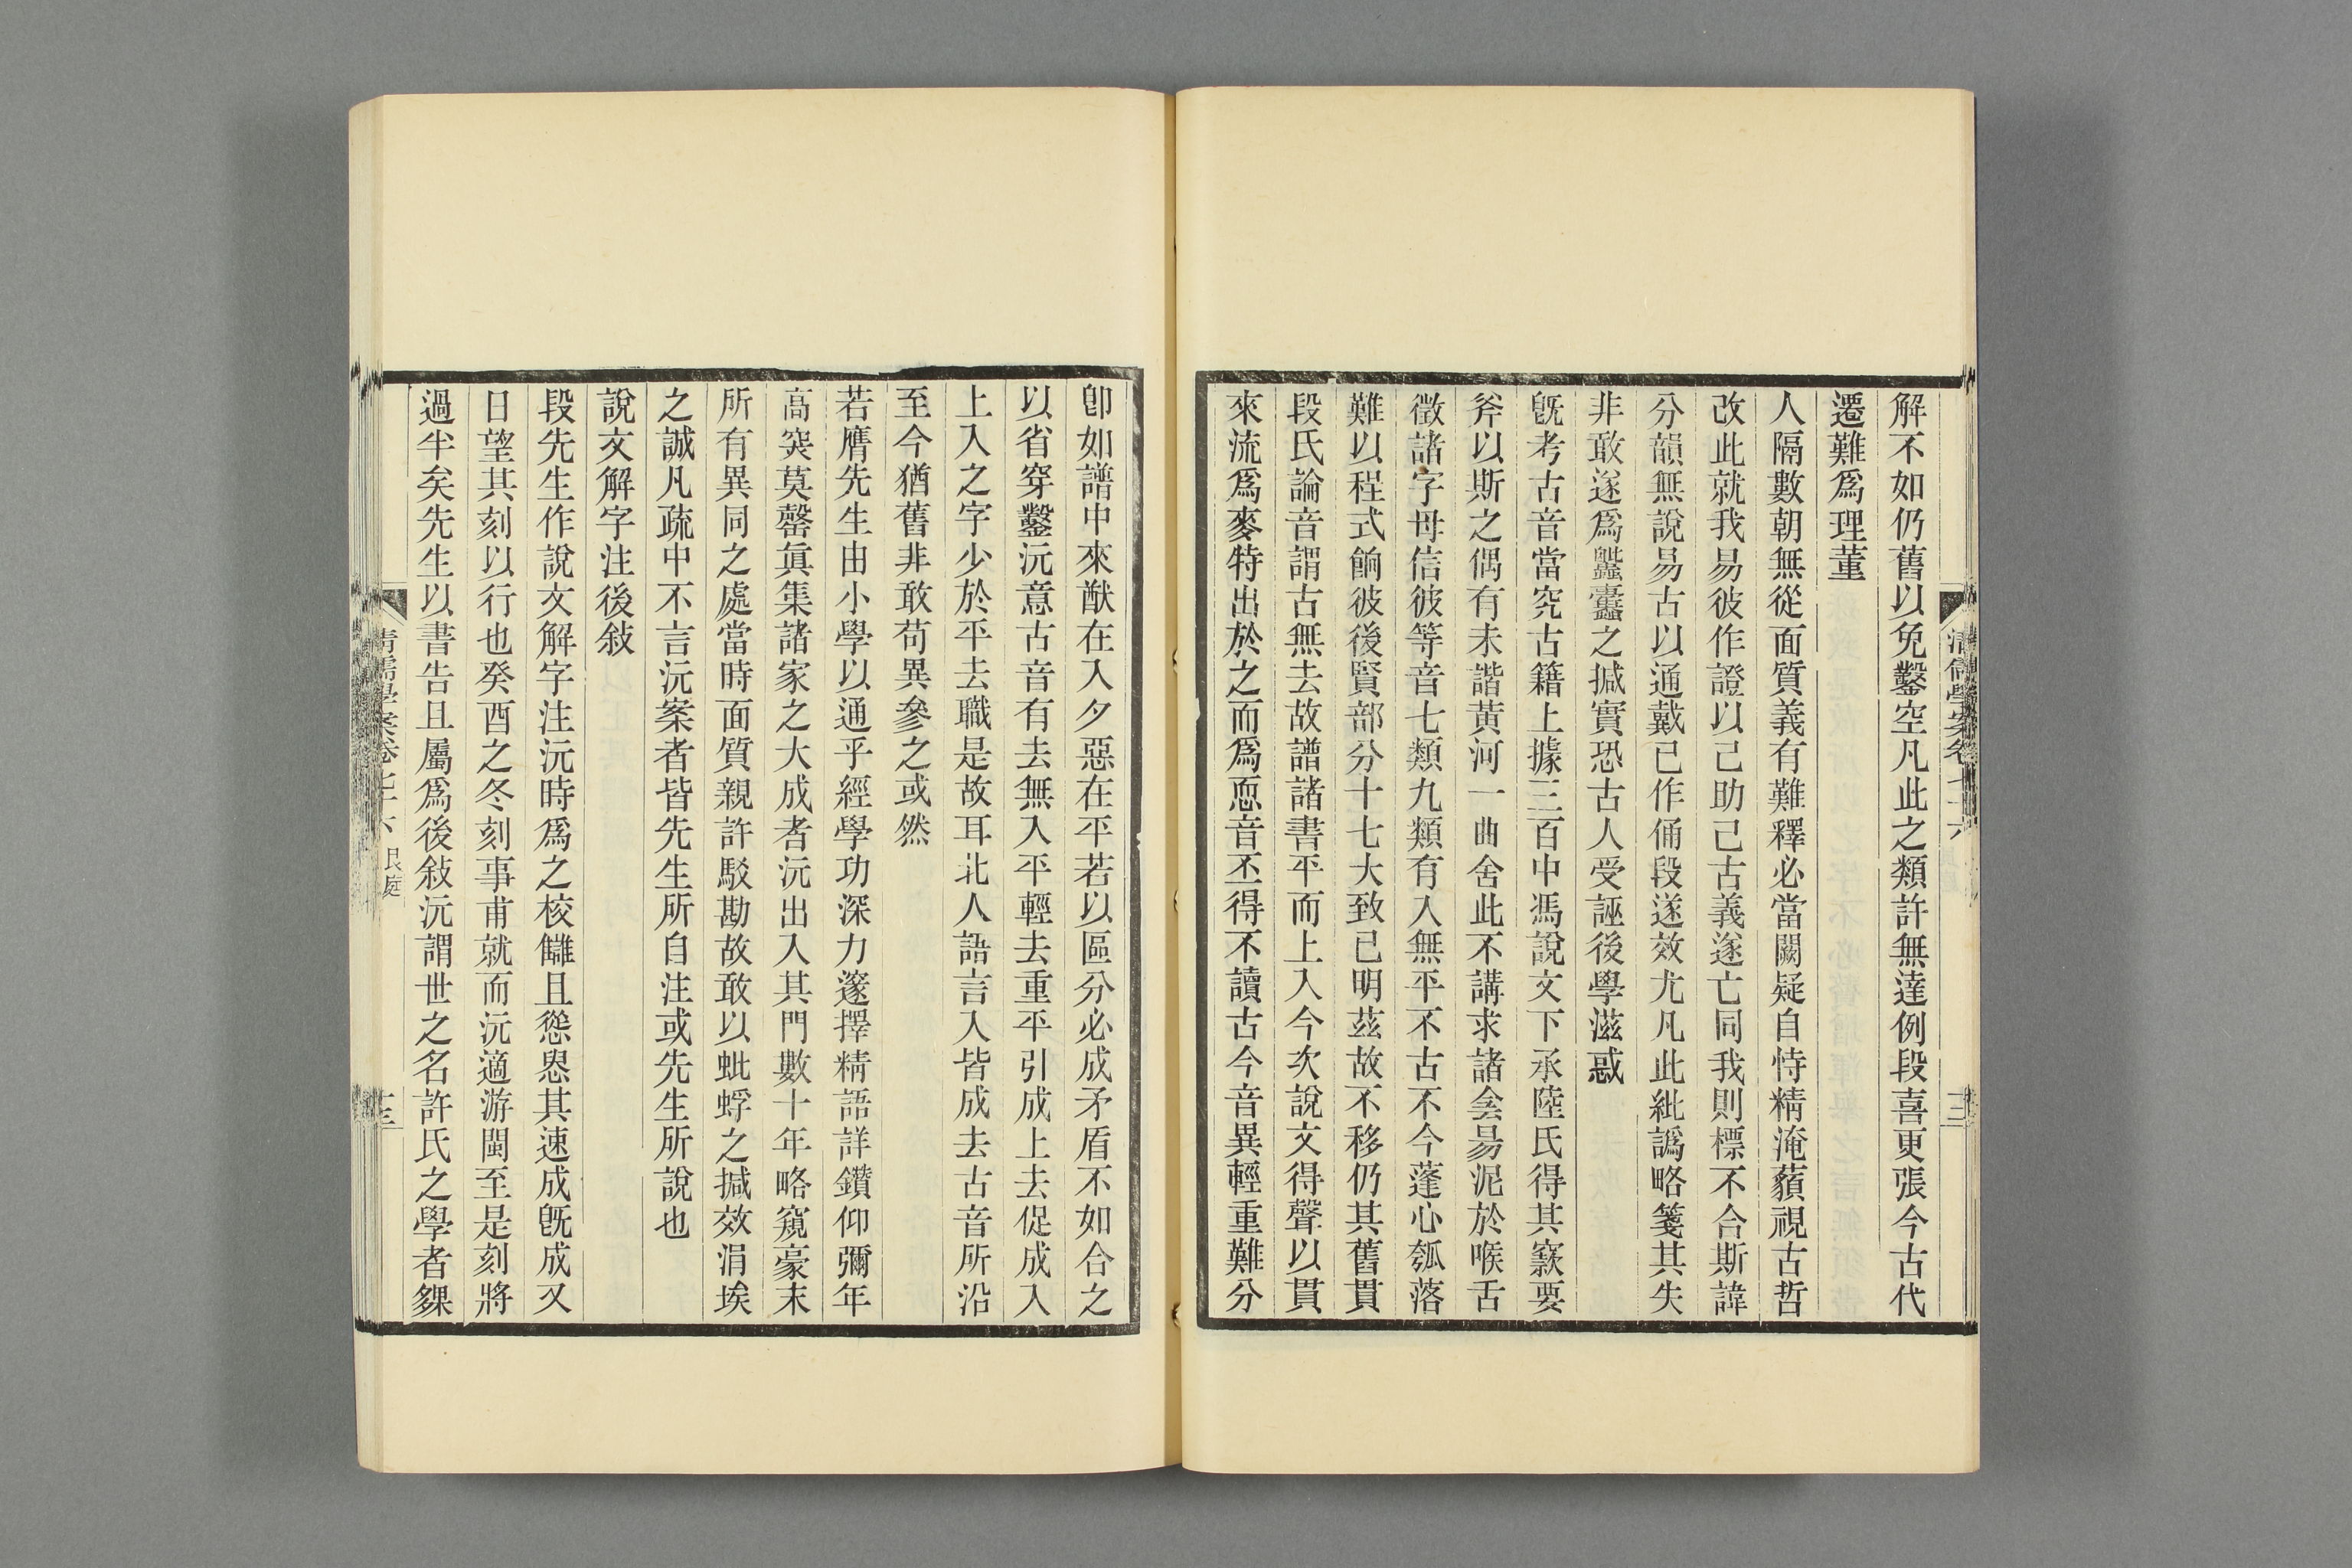 解不如仍舊以免鑿空凡此之類許無達例段喜更張今古代
遷難爲理董
人隔數朝無從面質義有難釋必當闕疑自恃精淹藐視古哲
改此就我易彼作證以己助己古義遂亡同我則標不合斯諱
分韻無說易古以通戴已作俑段遂效尤凡此紕譌略箋其失
非敢遂爲齜蠹之搣實恐古人受誣後學滋惑
旣考古音當究古籍上據三百中馮說文下承陸氏得其窾要
斧以斯之偶有未諧黃河一曲舍此不講求諸侌昜泥於喉舌
徵諸字母信彼等音七類九類有入無平不古不今蓬心瓠落
難以程式餉彼後賢部分十七大致已明茲故不移仍其舊貫
段氏論音謂古無去故譜諸書平而上入今次說文得聲以貫
來流爲麥特出於之而爲恧音丕得不讀古今音異輕重難分
清儒學案卷七十六
卽如譜中來猷在入夕惡在平若以區分必成矛盾不如合之
以省穿鑿沅意古音有去無入平輕去重平引成上去促成入
上入之字少於平去職是故耳北人語言入皆成去古音所沿
至今猶舊非敢苟異參之或然
若膺先生由小學以通乎經學功深力邃擇精語詳鑽仰彌年
高窔莫罄眞集諸家之大成者沅出入其門數十年略窺豪末
所有異同之處當時面質親許駁勘故敢以蚍蜉之搣效涓埃
之誠凡疏中不言沅案者皆先生所自注或先生所說也
說文解字注後敍
段先生作說文解字注沅時爲之校讎且慫恿其速成旣成又
日望其刻以行也癸酉之冬刻事甫就而沅適游閩至是刻將
過半矣先生以書告且屬爲後敍沅謂世之名許氏之學者夥
清儒學案卷七十六 艮庭